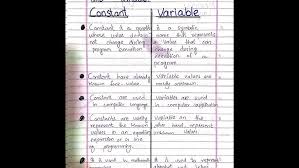 and variable.
Constant Variable
Constant is a is a symbolic
whose value during name that represents
not change during a value that can
program execution change during
execution of a
program.
Constant have already Variable values are
known fixed value mostly unknown.
Constant are used Variables are used
in computer language in computer application
Constants are usually Variables on the
represent the known other hand represent
values in an equation unknown values.
expression or in line
of programming.
It is used in It is used to represent